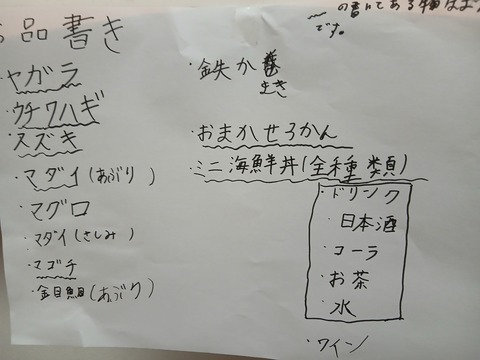 の書いてある物は
です。
品書き
・ヤガラ
・ウチワハギ
・スズキ
・マダイ(あぶり)
・マグロ
・マダイ(さしみ)
・マゴチ
・金目魚目(あぶり)
・鉄か巻
まき
・おまかせ3かん
・ミニ海鮮丼(全種類)
・ドリンク
・日本酒
・コーラ
・お茶
・水
・ワイン